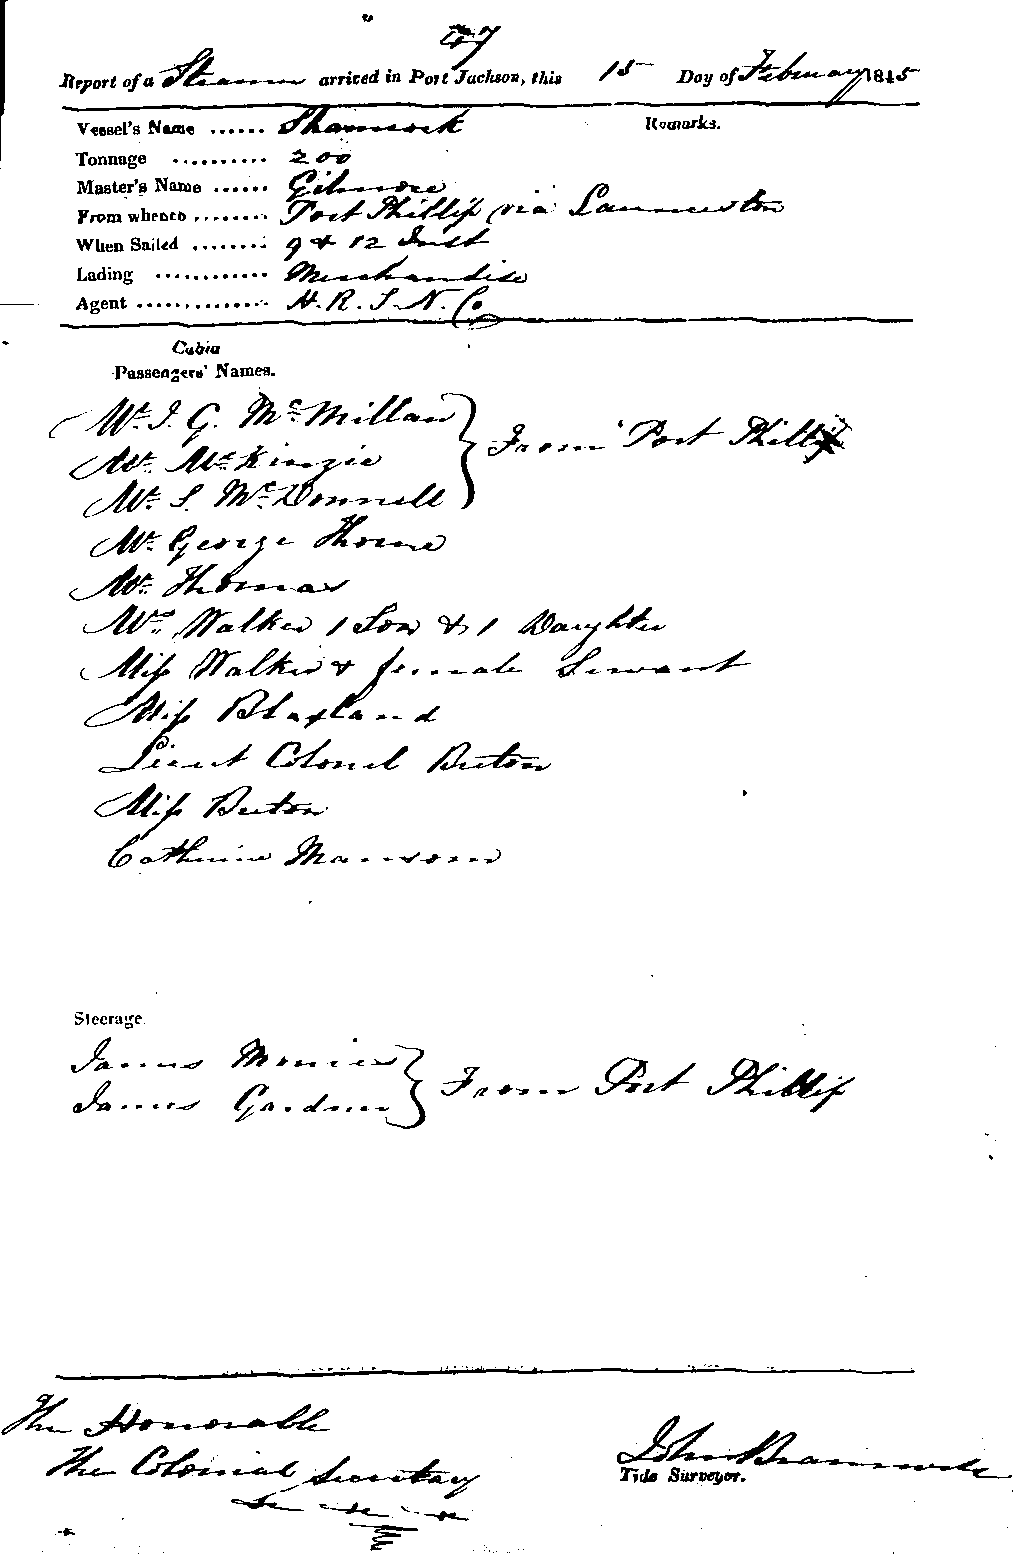 47
Report of a Steamer arrived in Port Jackson, this 15 Day of February 1845
Vessel's Name ...... Shamrock Remarks.
Tonnage .......... 200
Master's Name ...... Gilmore
From whence ........ Port Phillip via Launceston
When Sailed ........ 9 & 12 Inst
Lading ............ Merchandise
Agent .............. H. R. S. N. Co
Cabin
Passengers' Names.
Mr. J. G. McMillan
Mr. McKinzie From Port Phillip
Mr. S. McDonnell
Mr. George Thorne
Mr. Thomas
Mrs. Walker 1 Son & 1 Daughter
Miss Walker & female Servant
Miss Blaxland
Lieut Colonel Breton
Miss Breton
Catherine
Steerage.
James From Port Phillip
James Gardner
The Honorable
The Colonial Secretary
John
Tide Surveyor.